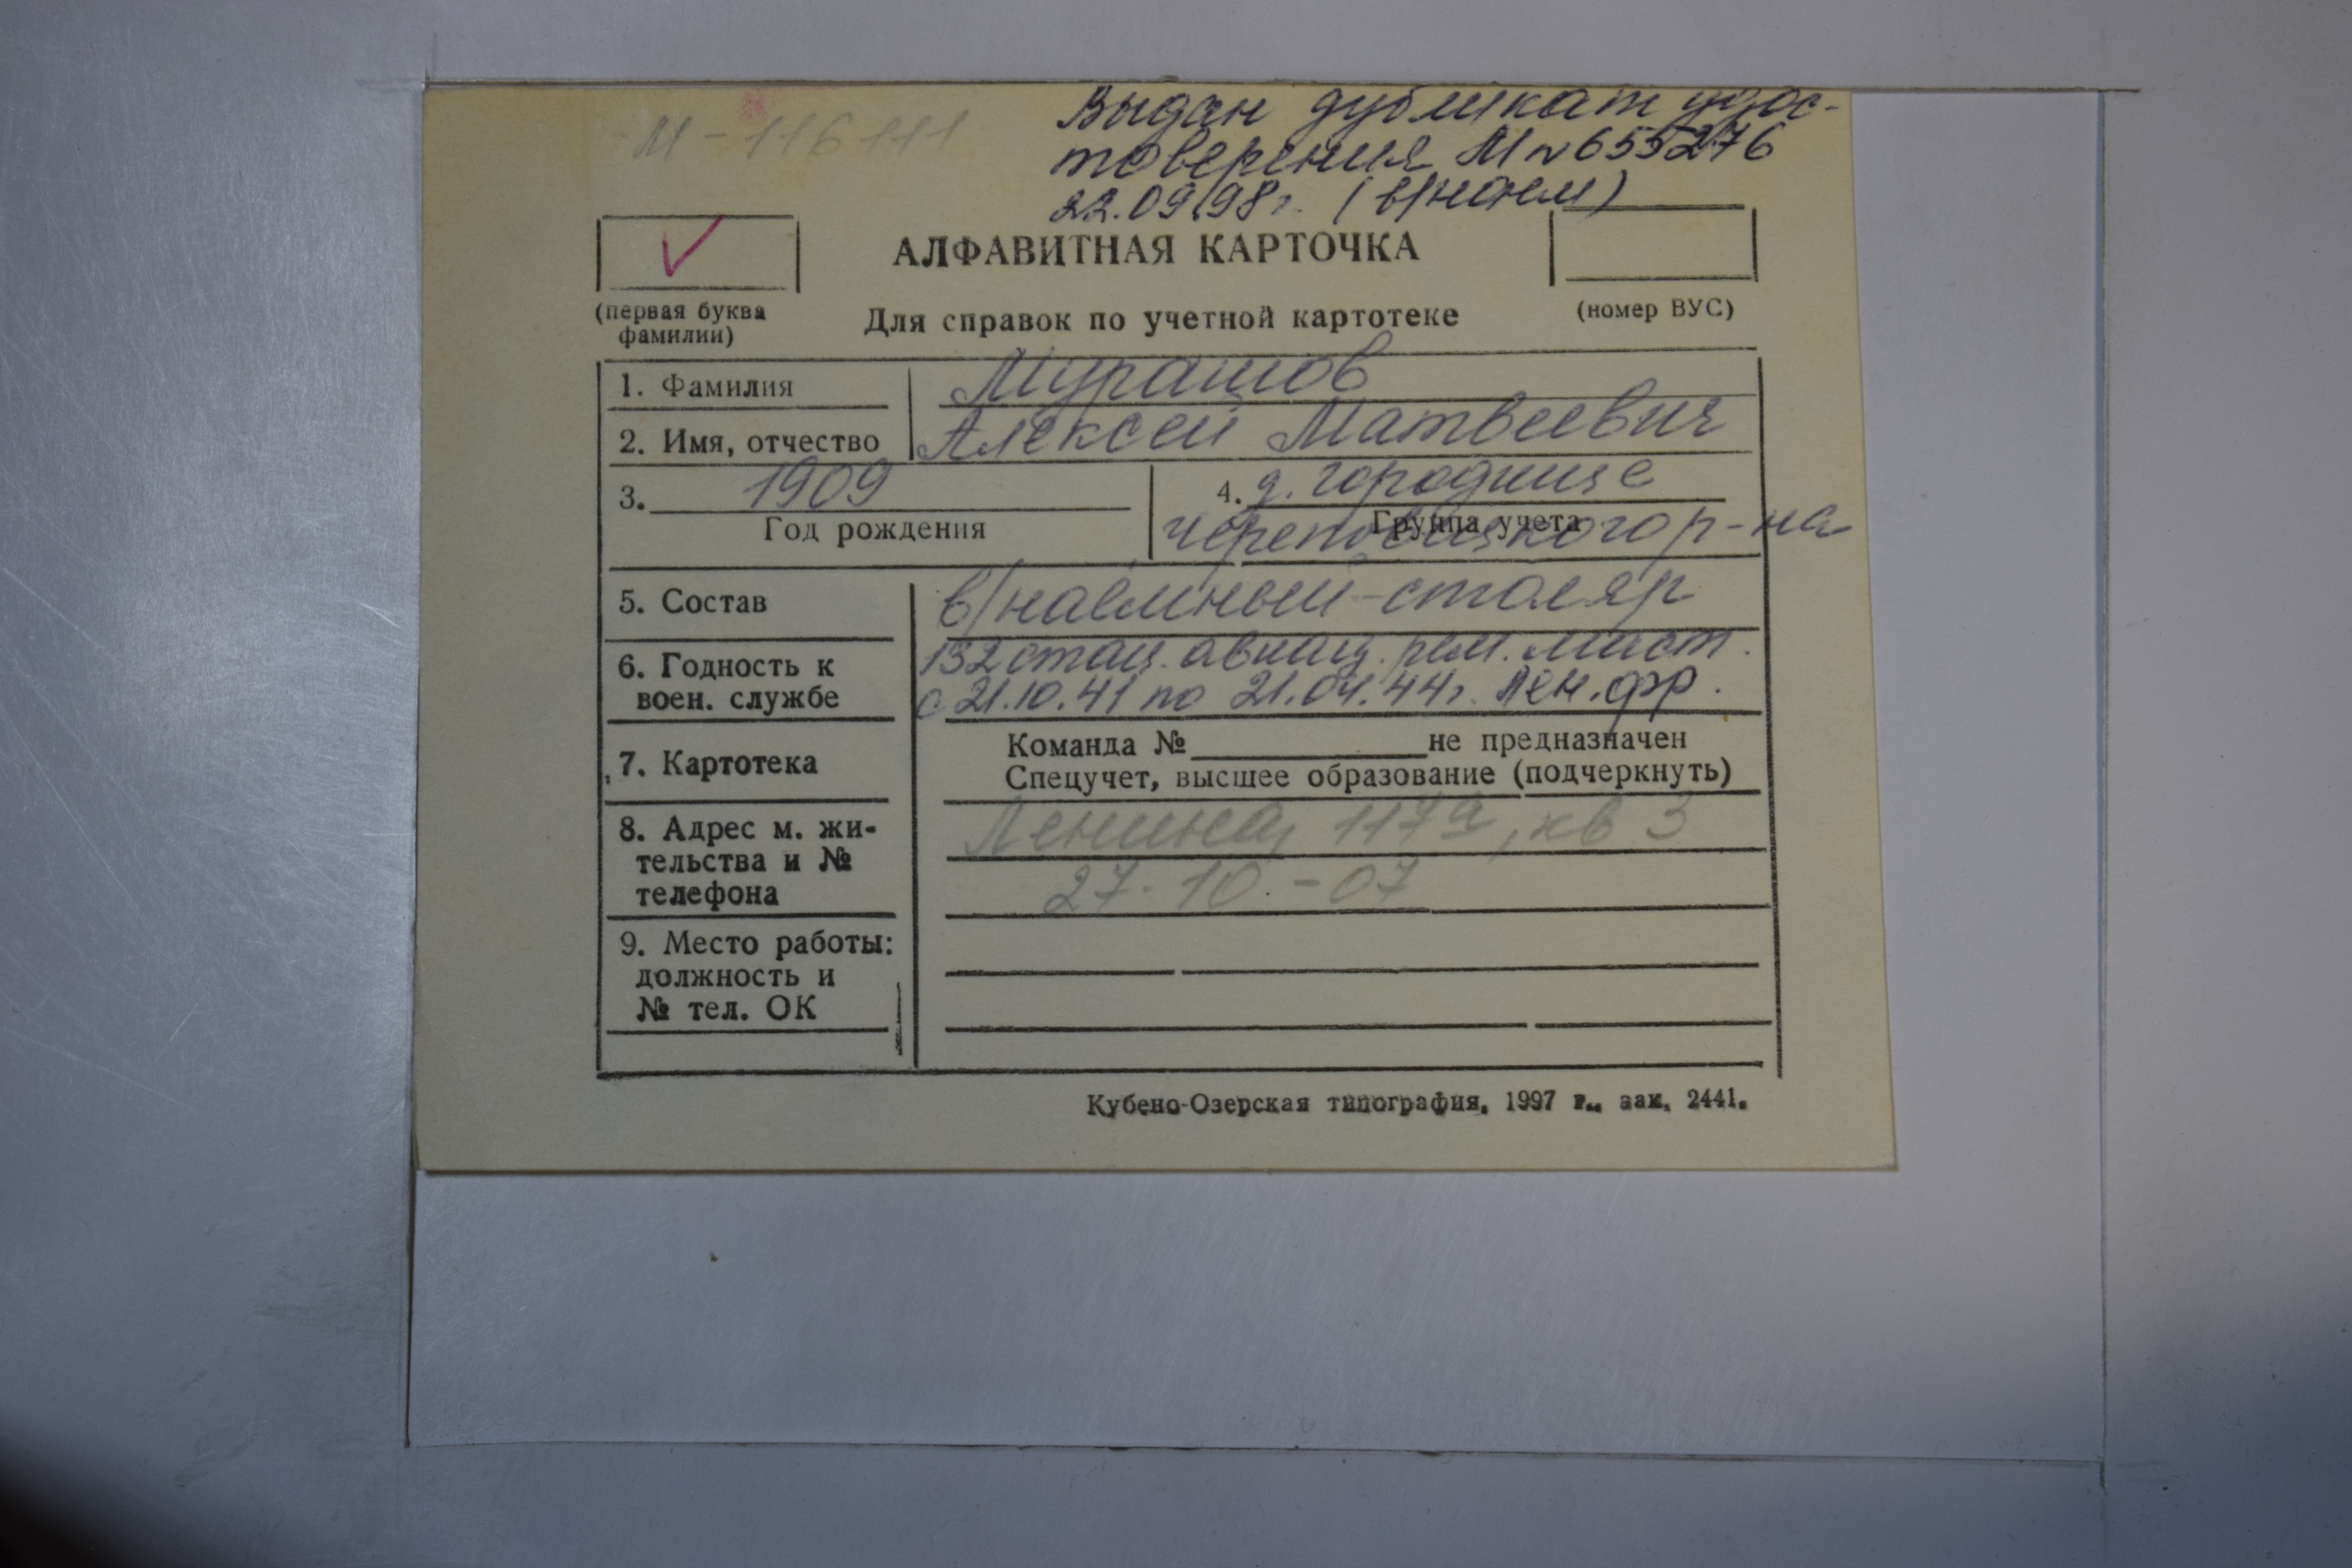 М-116111
Выдан дубликат удос-
товерения М № 655276
22.09.98г. (в/наем)
АЛФАВИТНАЯ КАРТОЧКА
(первая буква
фамилии)
Для справок по учетной картотеке
(номер ВУС)
1. Фамилия Мурашов
2. Имя, отчество Алексей Матвеевич
3. 1909
Год рождения
4. д. Городище
Группа учета
Череповецкого р-на
5. Состав в/наёмный-столяр
6. Годность к
воен. службе
132 стац. авиац. рем. маст.
с 21.10.41 по 21.04.44г. Лен.фр.
7. Картотека
Команда № не предназначен
Спецучет, высшее образование (подчеркнуть)
8. Адрес м. жи-
тельства и №
телефона
Ленина, 117а, кв 3
27-10-07
9. Место работы:
должность и
№ тел. ОК
Кубено-Озерская типография, 1997 г., зак. 2441.